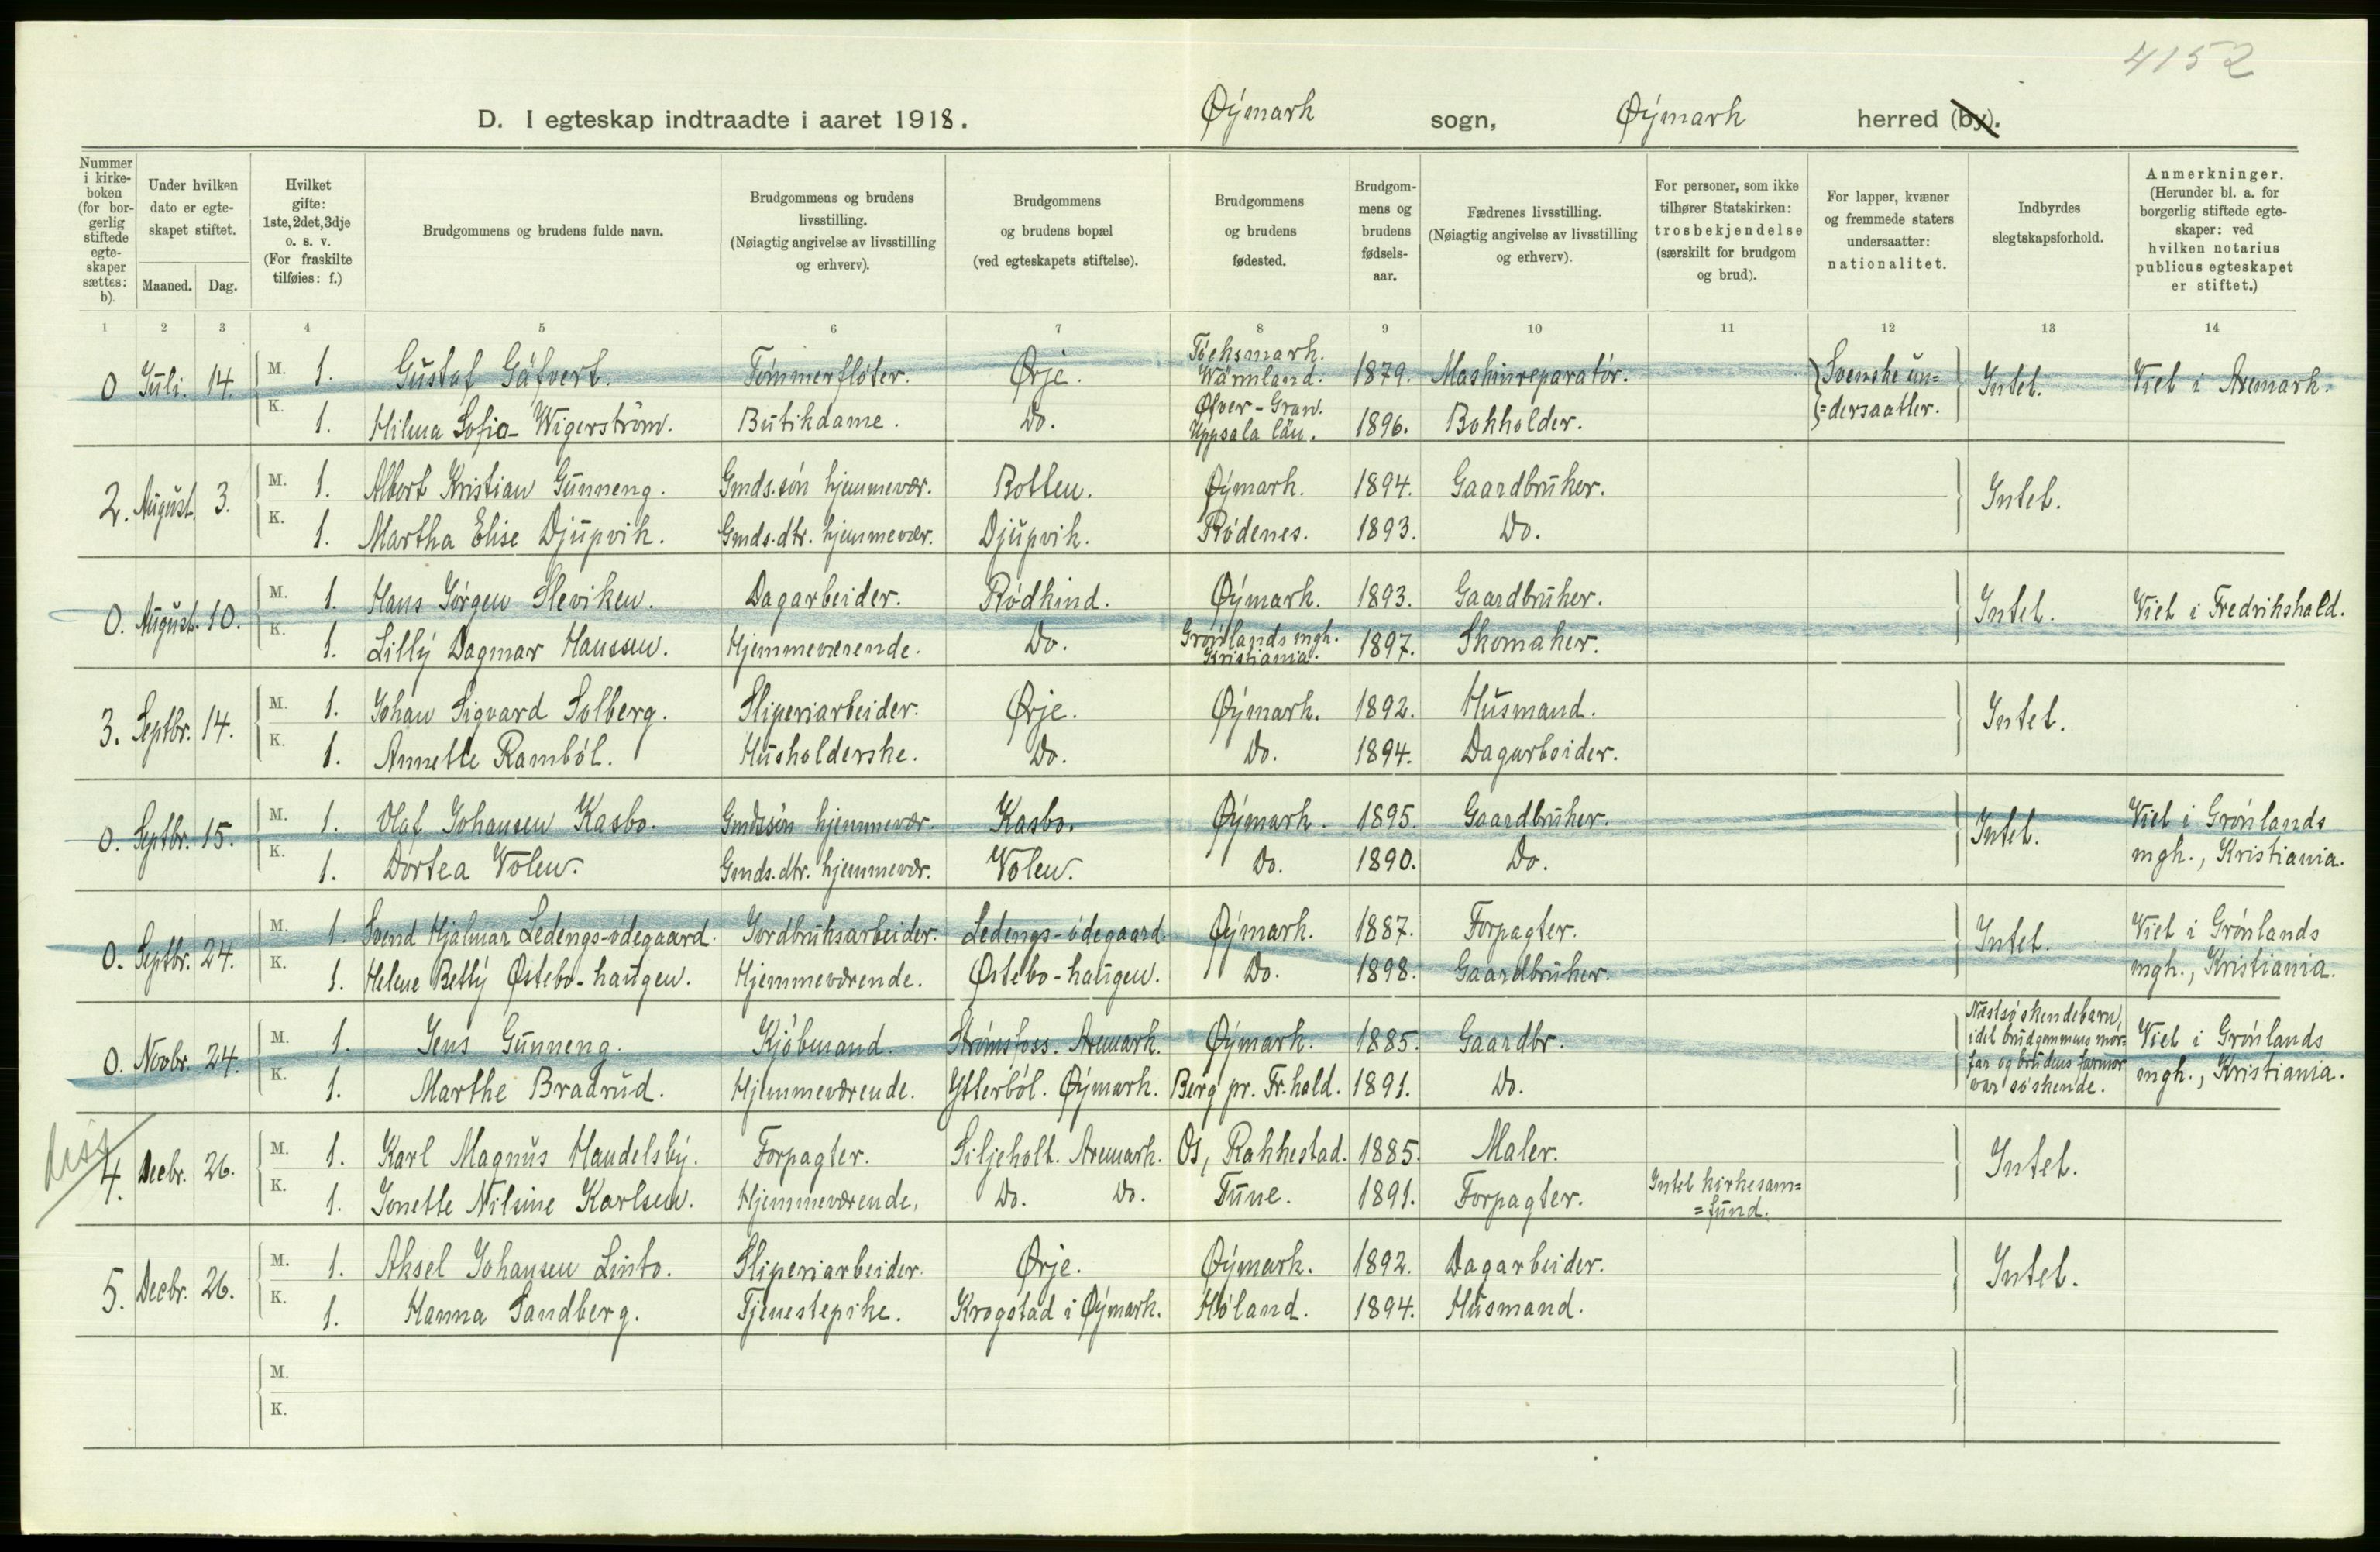 4152
D. I egteskap indtraadte i aaret 1918. Øymark sogn, Øymark herred (by).
Nummer i kirke-boken (for bor-gerlig stiftede egte-skaper sættes: b).
Under hvilken dato er egte-skapet stiftet.
Maaned. Dag.
Hvilket gifte: 1ste, 2det, 3dje o. s. v. (For fraskilte tilføies: f.)
Brudgommens og brudens fulde navn.
Brudgommens og brudens livsstilling. (Nøiagtig angivelse av livsstilling og erhverv).
Brudgommens og brudens bopæl (ved egteskapets stiftelse).
Brudgommens og brudens fødested.
Brudgom-mens og brudens fødsels-aar.
Fædrenes livsstilling. (Nøiagtig angivelse av livsstilling og erhverv).
For personer, som ikke tilhører Statskirken: trosbekjendelse (særskilt for brudgom og brud).
For lapper, kvæner og fremmede staters undersaatter: nationalitet.
Indbyrdes slegtskapsforhold.
Anmerkninger. (Herunder bl. a. for borgerlig stiftede egte-skaper: ved hvilken notarius publicus egteskapet er stiftet.)
1 2 3 4 5 6 7 8 9 10 11 12 13 14
0 Juli. 14. M. 1. Gustaf Gäfvert. Tømmerfløter. Ørje. Töcksmark. Wärmland. 1879. Maskinreparatør. Svenske un= =dersaatter. Intet. Viet i Aremark.
K. 1. Hilma Sofia Wigerström. Butikdame. Do. Ofver-Gran. Uppsala län. 1896. Bokholder.
2. August. 3. M. 1. Albert Kristian Gunneng. Gmds.søn hjemmevær. Botten. Øymark. 1894. Gaardbruker. Intet.
K. 1. Martha Elise Djupvik. Gmds.dtr. hjemmevær. Djupvik. Rødenes. 1893. Do.
0. August. 10. M. 1. Hans Jørgen Sleviken. Dagarbeider. Rødkind. Øymark. 1893. Gaardbruker. Intet. Viet i Fredrikshald.
K. 1. Lilly Dagmar Hansen. Hjemmeværende. Do. Grønlands mgh. Kristiania. 1897. Skomaker.
3. Septbr. 14. M. 1. Johan Sigvard Solberg. Sliperiarbeider. Ørje. Øymark. 1892. Husmand. Intet.
K. 1. Annette Rambøl. Husholderske. Do. Do. 1894. Dagarbeider.
0. Septbr. 15. M. 1. Olaf Johansen Kasbo. Gmdssøn hjemmevær. Kasbo. Øymark. 1895. Gaardbruker. Intet. Viet i Grønlands mgh., Kristiania.
K. 1. Dortea Volen. Gmds.dtr. hjemmevær. Volen. Do. 1890. Do.
0. Septbr. 24. M. 1. Svend Hjalmar Ledengs-ødegaard. Jordbruksarbeider. Ledengs-ødegaard. Øymark. 1887. Forpagter. Intet. Viet i Grønlands mgh., Kristiania.
K. 1. Helene Betty Østebø-haugen. Hjemmeværende. Østebø-haugen. Do. 1898. Gaardbruker.
0. Novbr. 24. M. 1. Jens Gunneng. Kjøbmand. Strømsfoss. Aremark. Øymark. 1885. Gaardbr. Næstsøskendebarn, idet brudgommens mor-far og brudens farmor var søskende. Viet i Grønlands mgh., Kristiania.
K. 1. Marthe Bradrud. Hjemmeværende. Ytterbøl. Øymark. Berg pr. Fr.hald. 1891. Do.
4. Decbr. 26. M. 1. Karl Magnus Handelsby. Forpagter. Siljeholt. Aremark. Os, Rakkestad. 1885. Maler. Intet.
K. 1. Jonette Nilsine Karlsen. Hjemmeværende, Do. Do. Tune. 1891. Forpagter. Intet kirkesam= =fund.
5. Decbr. 26. M. 1. Aksel Johansen Linto. Sliperiarbeider. Ørje. Øymark. 1892. Dagarbeider. Intet.
K. 1. Hanna Sandberg. Tjenestepike. Krogstad i Øymark. Høland. 1894. Husmand.
M.
K.